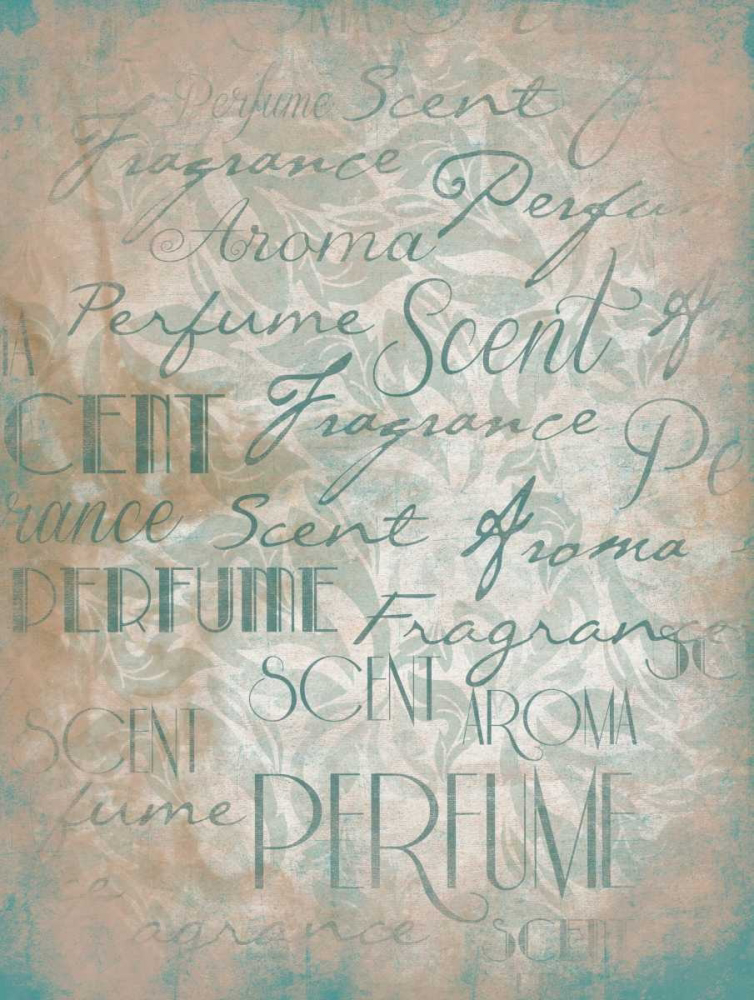 Perfume Scent
Fragrance
Perfu
Aroma
Perfume Scent
CENT Fragrance Pe
rance Scent Aroma
PERFUME Fragrance
SC
SCENT
SCENT AROMA
fume PERFUME
agrance SCENT